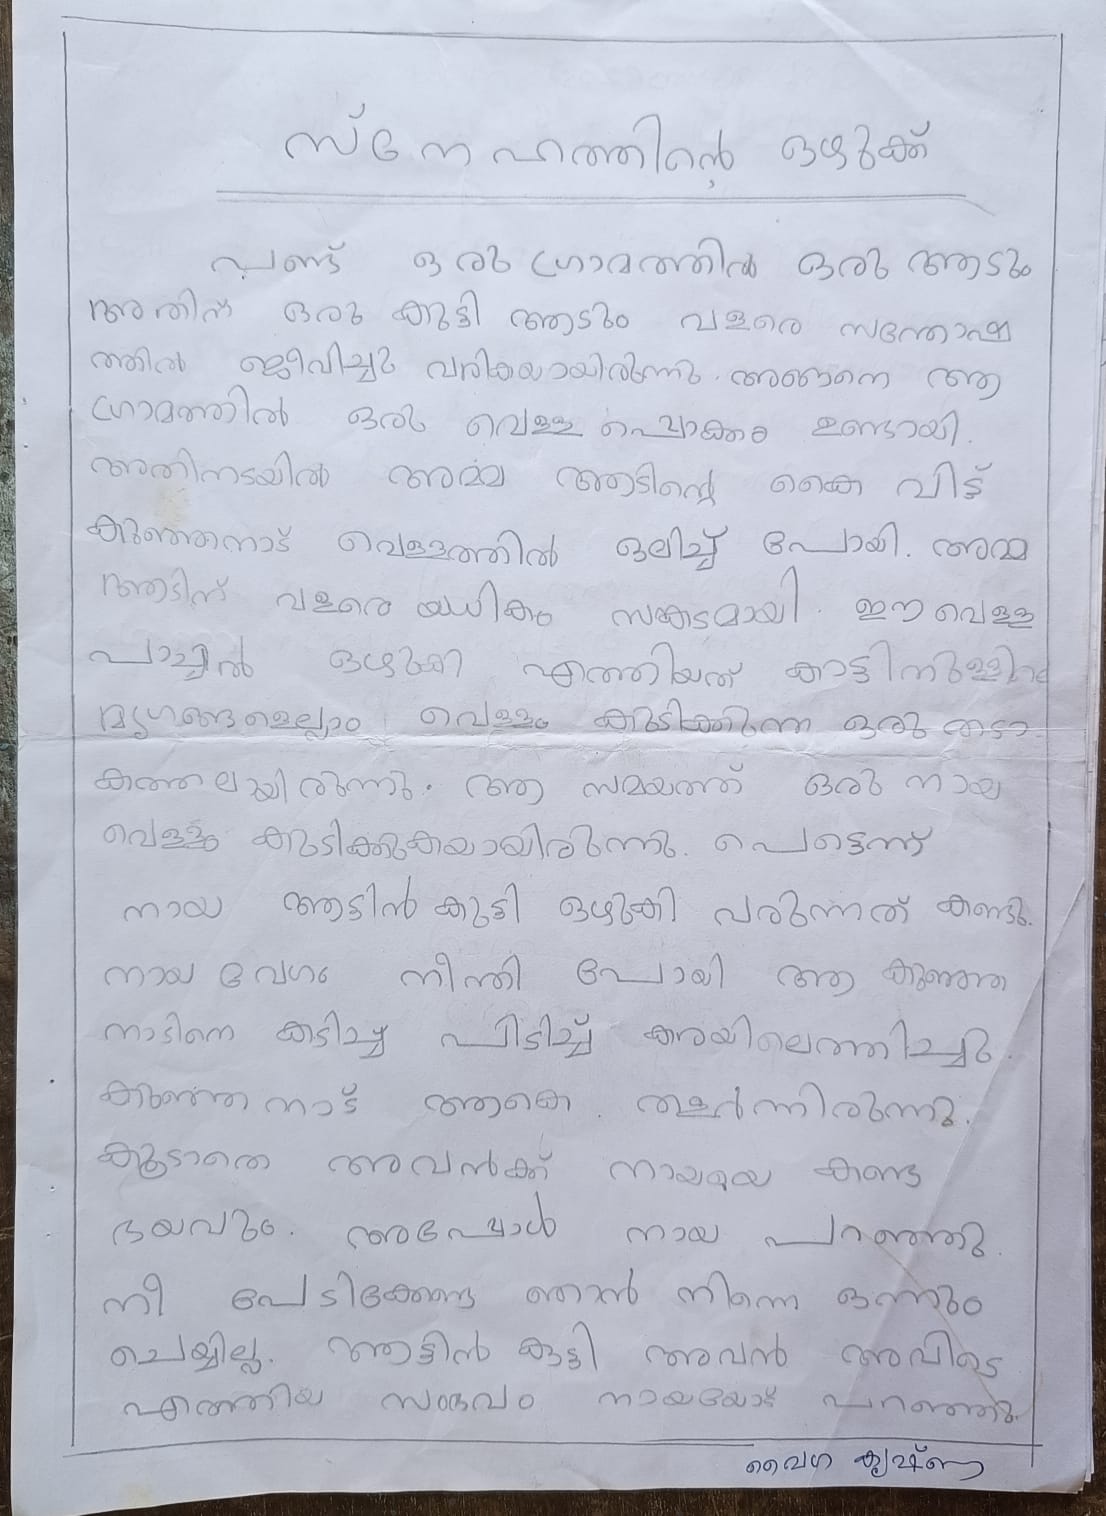 സ്നേഹത്തിന്റെ ഒഴുക്ക്
പണ്ട് ഒരു ഗ്രാമത്തിൽ ഒരു ആടും
അതിന് ഒരു കുട്ടി ആടും വളരെ സന്തോഷ
ത്തിൽ ജീവിച്ചു വരികയായിരുന്നു. അങ്ങനെ ആ
ഗ്രാമത്തിൽ ഒരു വെള്ള പൊക്കം ഉണ്ടായി.
അതിനടയിൽ അമ്മ ആടിന്റെ കൈ വിട്ട്
കുഞ്ഞനാട് വെള്ളത്തിൽ ഒലിച്ച് പോയി. അമ്മ
ആടിന് വളരെയധികം സങ്കടമായി. ഈ വെള്ള
പാച്ചിൽ ഒഴുകി എത്തിയത് കാട്ടിനുള്ളിലെ
മൃഗങ്ങളെല്ലാം വെള്ളം കുടിക്കുന്ന ഒരു തടാ
കത്തലായിരുന്നു. ആ സമയത്ത് ഒരു നായ
വെള്ളം കുടിക്കുകയായിരുന്നു. പെട്ടെന്ന്
നായ ആട്ടിൻ കുട്ടി ഒഴുകി വരുന്നത് കണ്ടു.
നായ വേഗം നീന്തി പോയി ആ കുഞ്ഞ
നാടിനെ കടിച്ച പിടിച്ച് കരയിലെത്തിച്ചു.
കുഞ്ഞനാട് ആകെ തളർന്നിരുന്നു.
കൂടാതെ അവൻക്ക് നായയെ കണ്ട
ഭയവും. അപ്പോൾ നായ പറഞ്ഞു.
നീ പേടിക്കേണ്ട ഞാൻ നിന്നെ ഒന്നും
ചെയ്യില്ല. ആട്ടിൻ കുട്ടി അവൻ അവിടെ
എത്തിയ സംഭവം നായയോട് പറഞ്ഞു.
വൈഗ കൃഷ്ണ